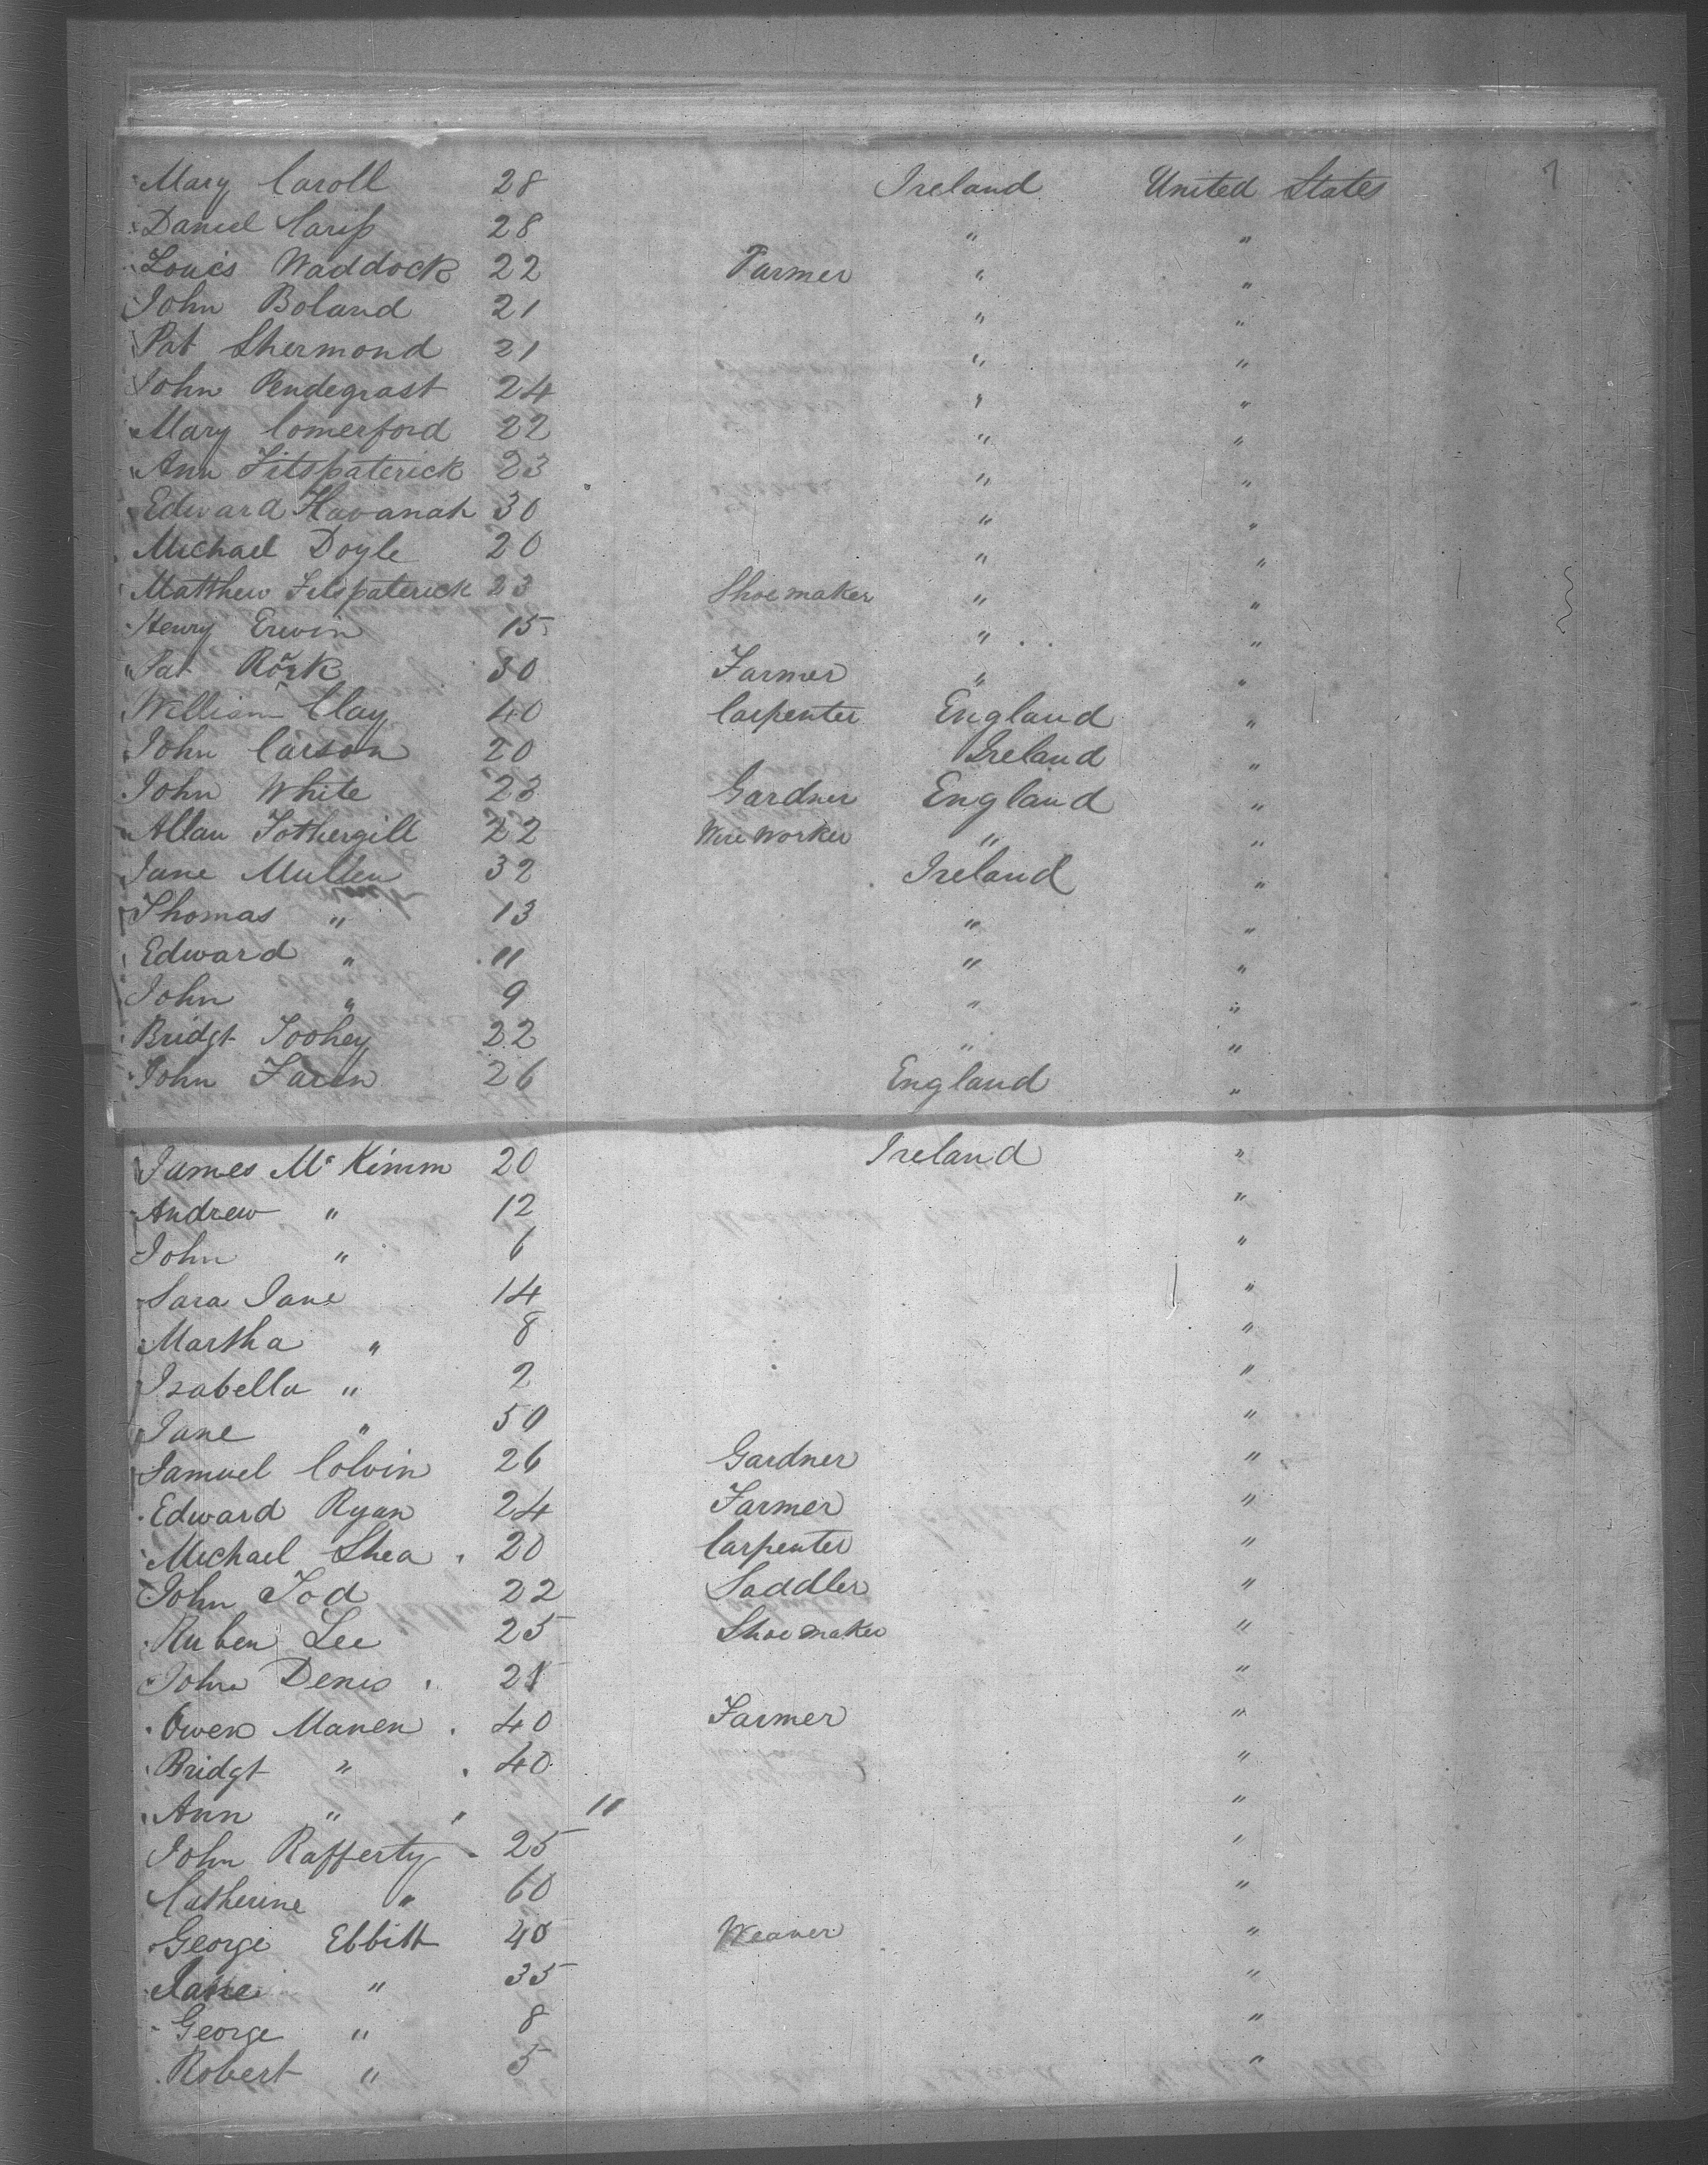 Mary Caroll 28 Ireland United States 7
Daniel Cariss 28 " "
Louis Waddock 22 Farmer " "
John Boland 21 " "
Pat Shermond 21 " "
John Pendegrast 24 " "
Mary Comerford 22 " "
Ann Fitspaterick 23 " "
Edward Havanah 30 " "
Michael Doyle 20 " "
Matthew Fitspaterick 23 Shoemaker " "
Henry Erwin 15 " "
Pat Rork 30 Farmer " "
William Clay 40 Carpenter England "
John Carson 20 Ireland "
John White 23 Gardner England "
Allan Fothergill 22 Wire Worker " "
Jane Mullen 32 Ireland "
Thomas " 13 " "
Edward " 11 " "
John " 9 " "
Bridgt Toohey 22 " "
John Faren 26 England "
James Mc Kimm 20 Ireland "
Andrew " 12 "
John " 6 "
Sara Jane 14 "
Martha " 8 "
Isabella " 2 "
Jane " 50 "
Samuel Colvin 26 Gardner "
Edward Ryan 24 Farmer "
Michael Shea 20 Carpenter "
John Tod 22 Saddler "
Ruben Lee 25 Shoe maker "
John Denis "
Owen Manen 40 Farmer "
Bridgt " 40 "
Ann " " 11 "
John Rafferty 25 "
Catherine " 60 "
George Ebbitt 40 Weaver "
Jane " 35 "
George " 8 "
Robert " 5 "